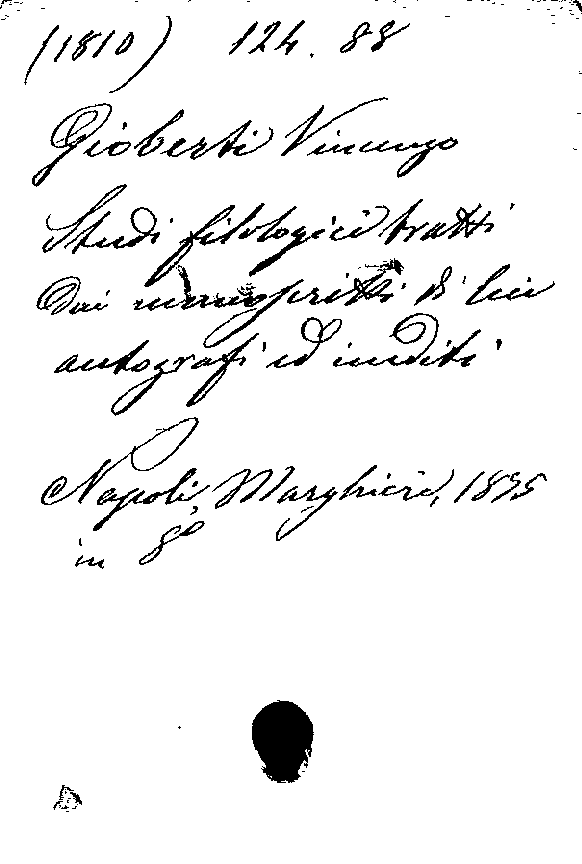 (1810) 124. 88
Gioberti Vincenzo
Studi filologici tratti
dai manoscritti di lui
autografi ed inediti
Napoli, Marghieri, 1895
in 8º